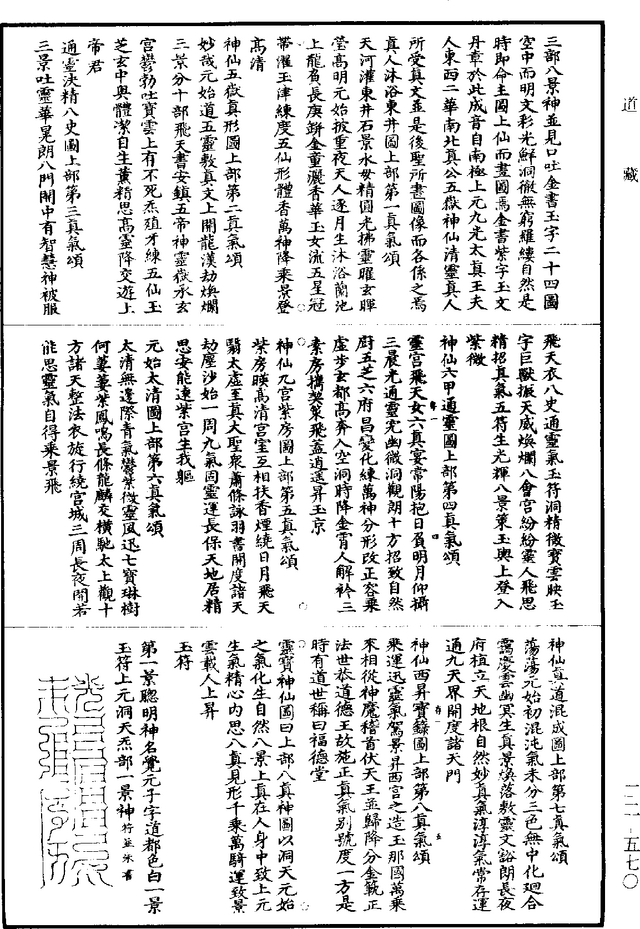 道藏
三部八景神並見口吐金書玉字二十四圖
空中而明文彩光鮮洞徹無窮羅縷自然是
時即命主圖上仙而畫圖焉金書紫字玉文
丹章於此成音自南極上元九光太真王夫
人東西二華南北真公五嶽神仙清靈真人
所受真文並是後聖所書圖像而各係之焉
真人沐浴東井圖上部第一真氣頌
天河灌東井石景水母精圓光拂靈曜玄暉
瑩高明元始披重夜天人逐月生沐浴蘭池
上龍負長庚缾金童灑香華玉女流五星冠
帶催玉津練度五仙形體香萬神降乘景登
高清
神仙五嶽真形圖上部第二真氣頌
妙哉元始道五靈敷真文上開龍漢劫煥爛
三景分十部飛天書安鎮五帝神靈嶽承玄
宮鬱勃吐寶雲上有不死炁殖牙練五仙玉
芝玄中奧體潔自生薰精思高靈降交遊上
帝君
通靈決精八史圖上部第三真氣頌
三景吐靈華晃朗八門開中有智慧神被服
飛天衣八史通靈氣玉符洞精微寶雲映玉
字巨獸振天威煥爛八會宮紛紛靈人飛思
精招真氣五符生光輝八景策玉輿上登入
紫微
神仙六甲通靈圖上部第四真氣頌
靈宮飛天女六真宴常陽抱日負明月仰攝
三晨光通靈究幽微洞觀朗十方招致自然
廚五芝六府昌變化練萬神分形改正容乘
虛步玄都高奔入空洞時降金霄人解衿三
素房攜契策飛蓋逍遙昇玉京
神仙九宮紫房圖上部第五真氣頌
紫房映高清宮室互相扶香煙繞日月飛天
翳太虛至真大聖衆蕭條詠羽書開度諸天
劫塵沙始一周九氣固靈運長保天地居精
思安能遠紫宮生我軀
元始太清圖上部第六真氣頌
太清無邊際青氣鬱紫微靈風迅七寶琳樹
何萋萋紫鳳鳴長條龍麟交橫馳太上觀十
方諸天整法衣旋行繞宮城三周長夜開若
能思靈氣自得乘景飛
神仙真道混成圖上部第七真氣頌
蕩蕩元始初混沌氣未分三色無中化迴合
靄慶雲幽冥生真景煥落敷靈文谿朗長夜
府植立天地根自然妙真氣淳淳氣常存運
通九天界開度諸天門
神仙西昇寶籙圖上部第八真氣頌
乘運迅靈氣駕景昇西宮之造玉那國萬乘
來相從神魔稽首伏天王並歸降分金範正
法世恭道德王故施正真氣别號度一方是
時有道世稱曰福德堂
靈寶神仙圖曰上部八真神圖以洞天元始
之氣化生自然八景上真在人身中致上元
生氣精心內思八真見形千乘萬騎運致景
雲載人上昇
玉符
第一景聰明神名覺元子字道都色白一景
玉符上元洞天炁部一景神符並朱書
一一一-五七〇